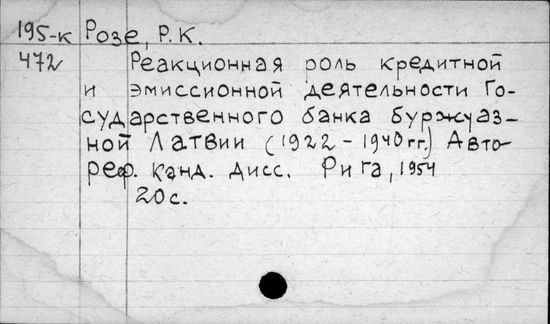 195-к Розе, Р.К.
472 Реакционная роль кредитной
и эмиссионной деятельности Го-
сударственного банка буржуаз-
ной Латвии (1922 - 1940 гг.) Авто-
реф. канд. дисс. Рига, 1954
20 с.